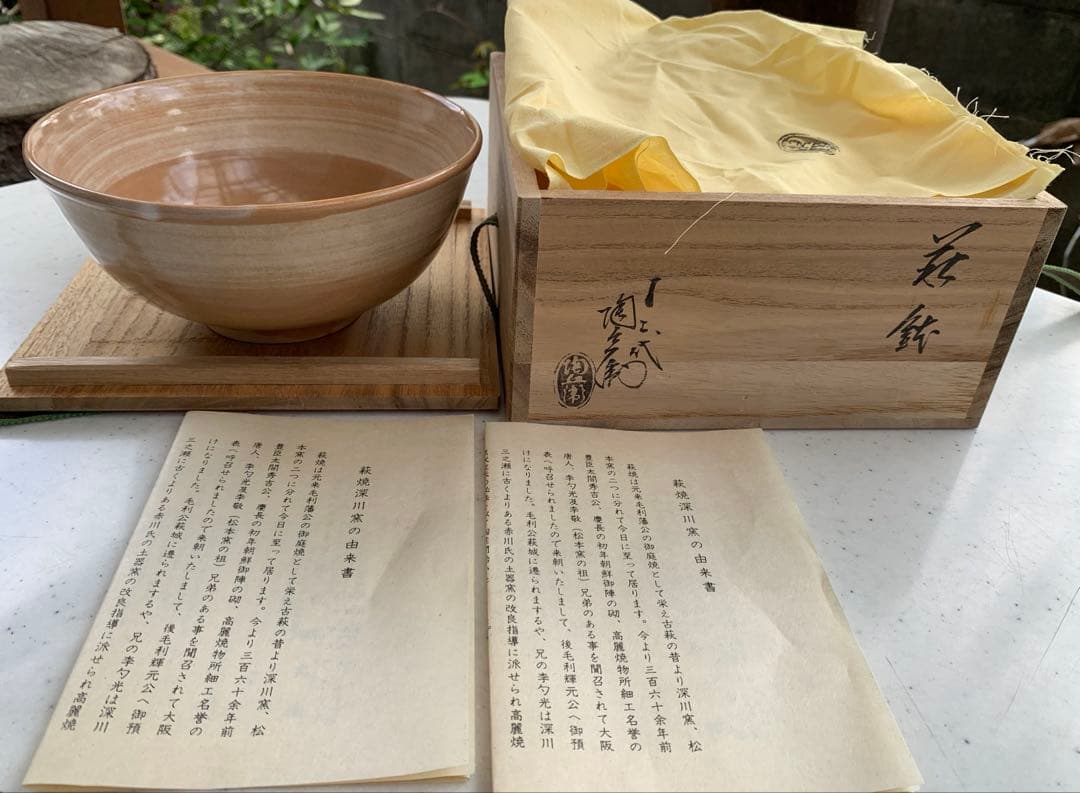 萩鉢
十二代
陶兵衛
陶兵衛
萩焼深川窯の由来書
萩焼は元来毛利藩公の御庭焼として栄え古萩の昔より深川窯、松
本窯の二つに分れて今日に至って居ります。今より三百六十余年前
豊臣太閤秀吉公、慶長の初年朝鮮御陣の砌、高麗焼物所細工名誉の
唐人、李勺光及李敬(松本窯の祖)兄弟のある事を聞召されて大阪
表へ呼召せられましたので来朝いたしまして、後毛利輝元公へ御預
けになりました。毛利公萩城に遷られまするや、兄の李勺光は深川
三之瀬に古くよりある赤川氏の土器窯の改良指導に派せられ高麗焼
萩焼深川窯の由来書
萩焼は元来毛利藩公の御庭焼として栄え古萩の昔より深川窯、松
本窯の二つに分れて今日に至って居ります。今より三百六十余年前
豊臣太閤秀吉公、慶長の初年朝鮮御陣の砌、高麗焼物所細工名誉の
唐人、李勺光及李敬(松本窯の祖)兄弟のある事を聞召されて大阪
表へ呼召せられましたので来朝いたしまして、後毛利輝元公へ御預
けになりました。毛利公萩城に遷られまするや、兄の李勺光は深川
三之瀬に古くよりある赤川氏の土器窯の改良指導に派せられ高麗焼